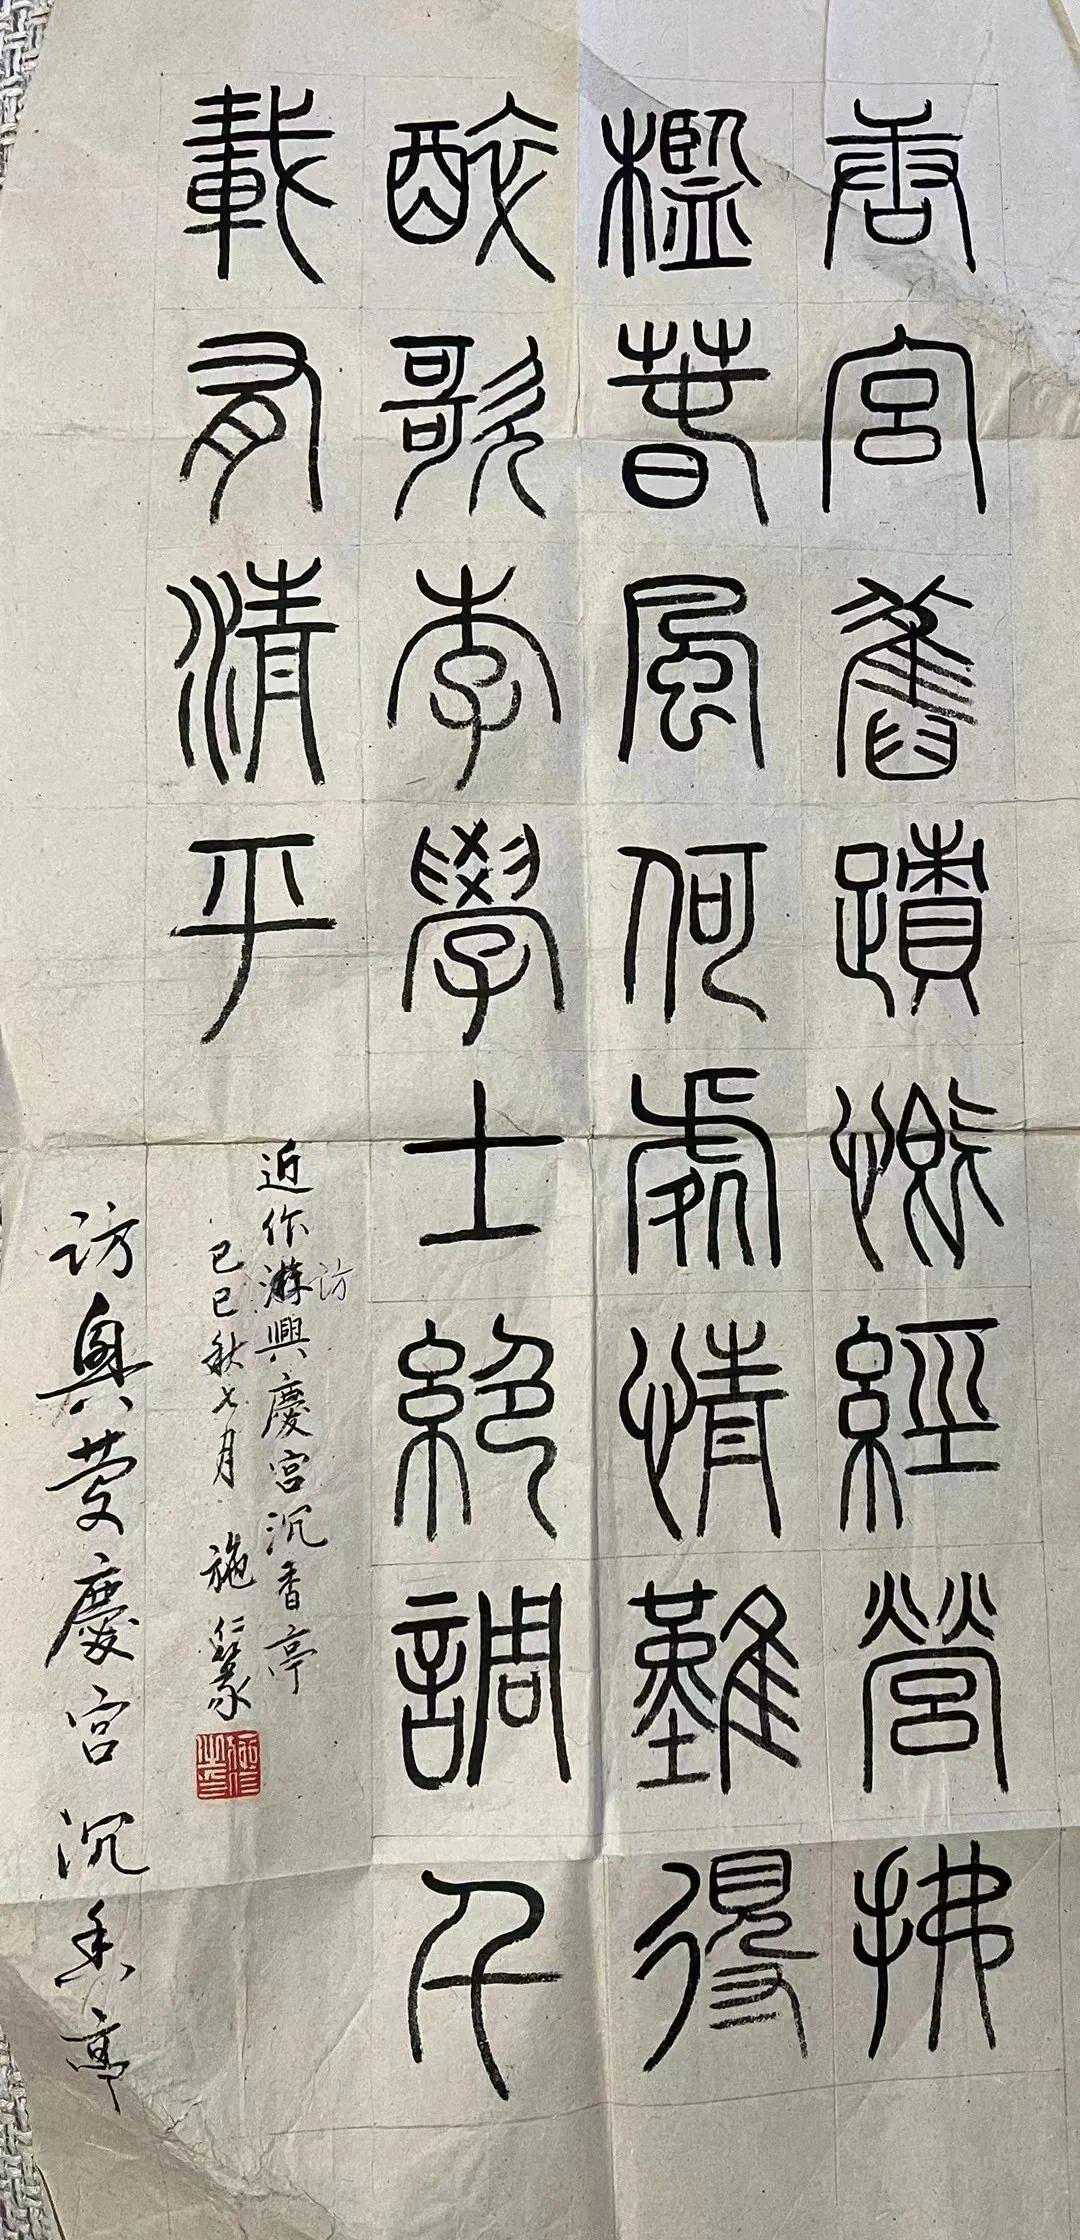 唐宮舊蹟慨經營拂
檻春風何處情難得
醉歌李學士絕調千
載有清平
近作游興慶宮沉香亭
访
己巳秋七月 施仁篆
访興慶慶宫沉香亭